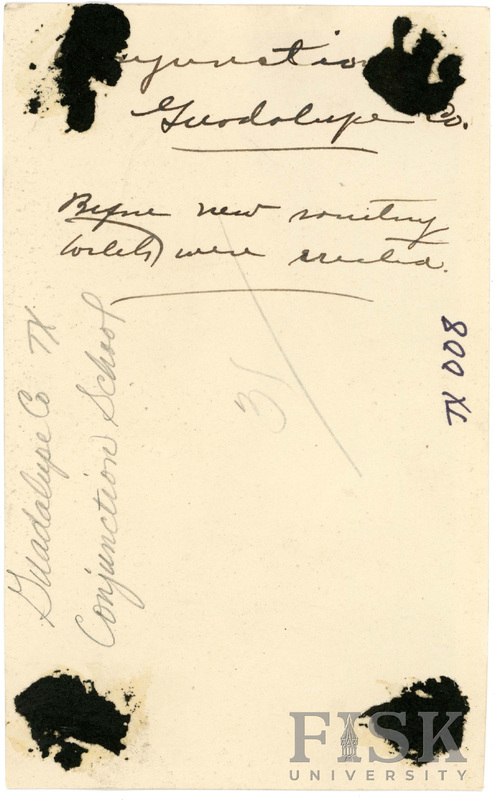 njunction
Guadalupe Co.
Before new sanitary
toilets were erected.
Guadalupe Co TX
Conjunction School
31
TX 008
FISK
UNIVERSITY